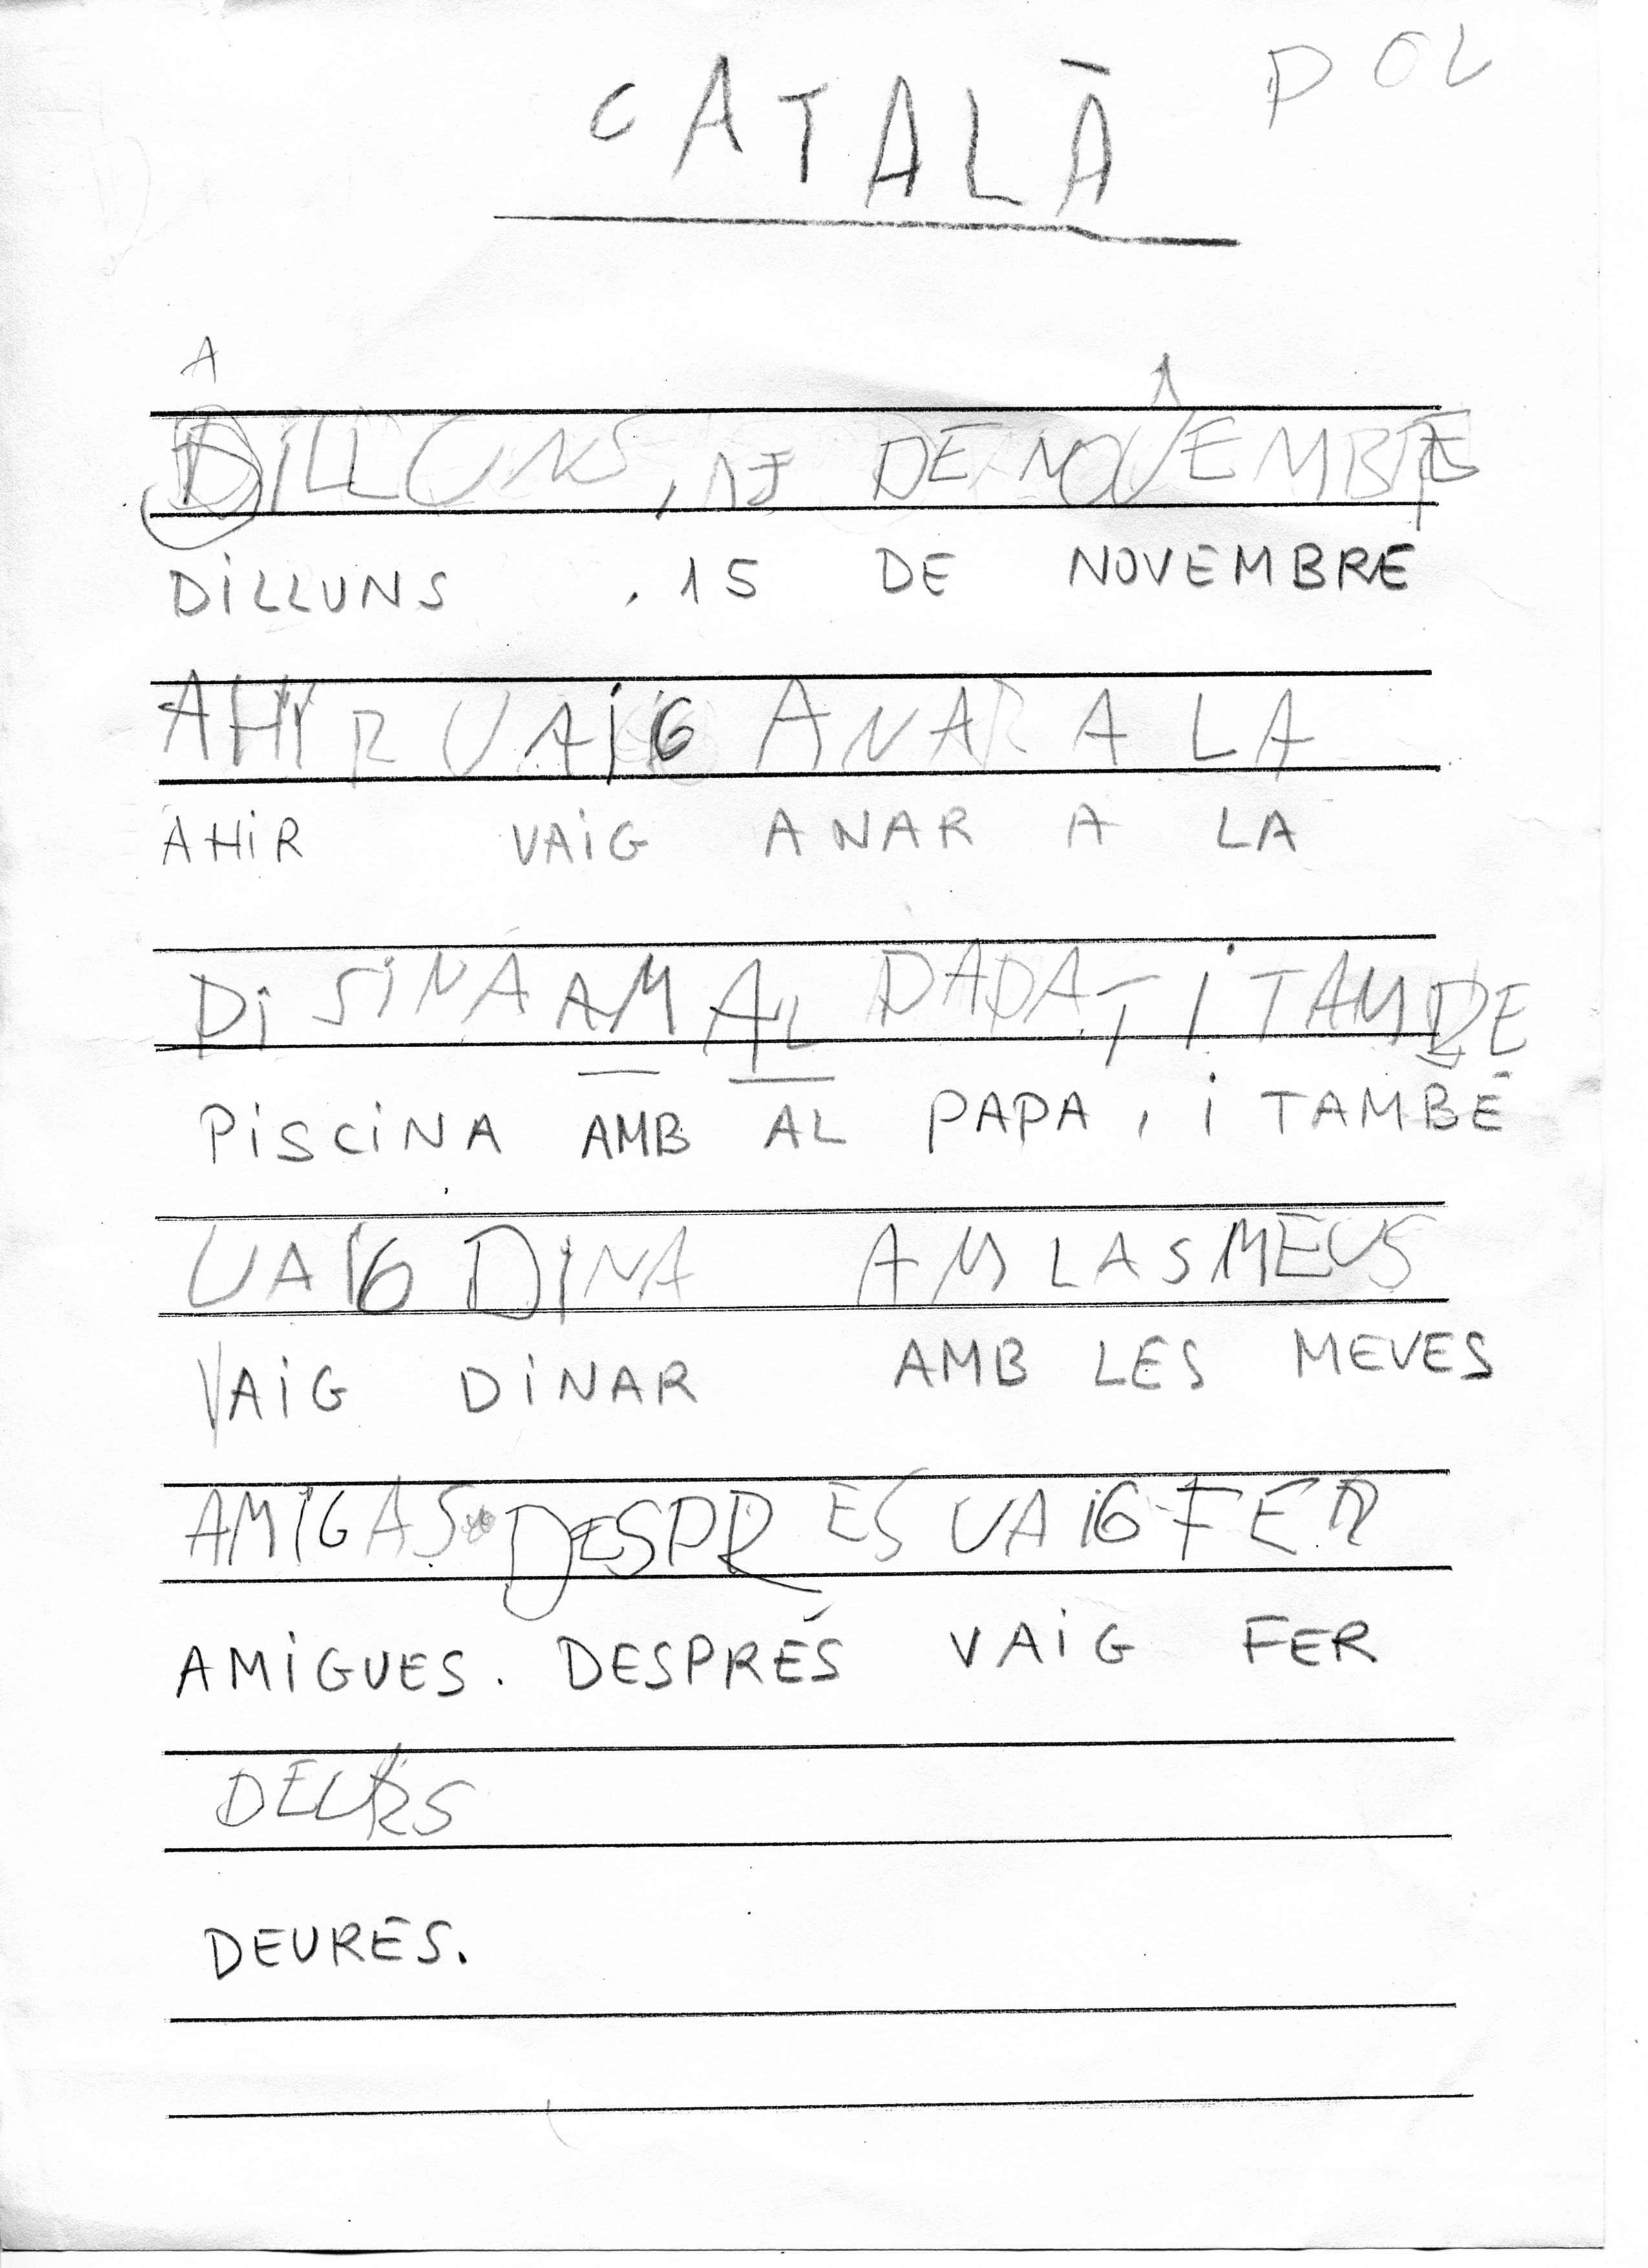 POL
CATALÀ
A
DILLUNS, 15 DE NOVEMBRE
DILLUNS , 15 DE NOVEMBRE
AHIR VAIG ANAR A LA
AHIR VAIG ANAR A LA
PISINA AM AL PAPA, I TAMBE
PISCINA AMB AL PAPA, I TAMBÉ
VAIG DINA AM LAS MEUS
VAIG DINAR AMB LES MEVES
AMIGAS. DESPRES VAIG FER
AMIGUES. DESPRÉS VAIG FER
DEURS
DEURES.